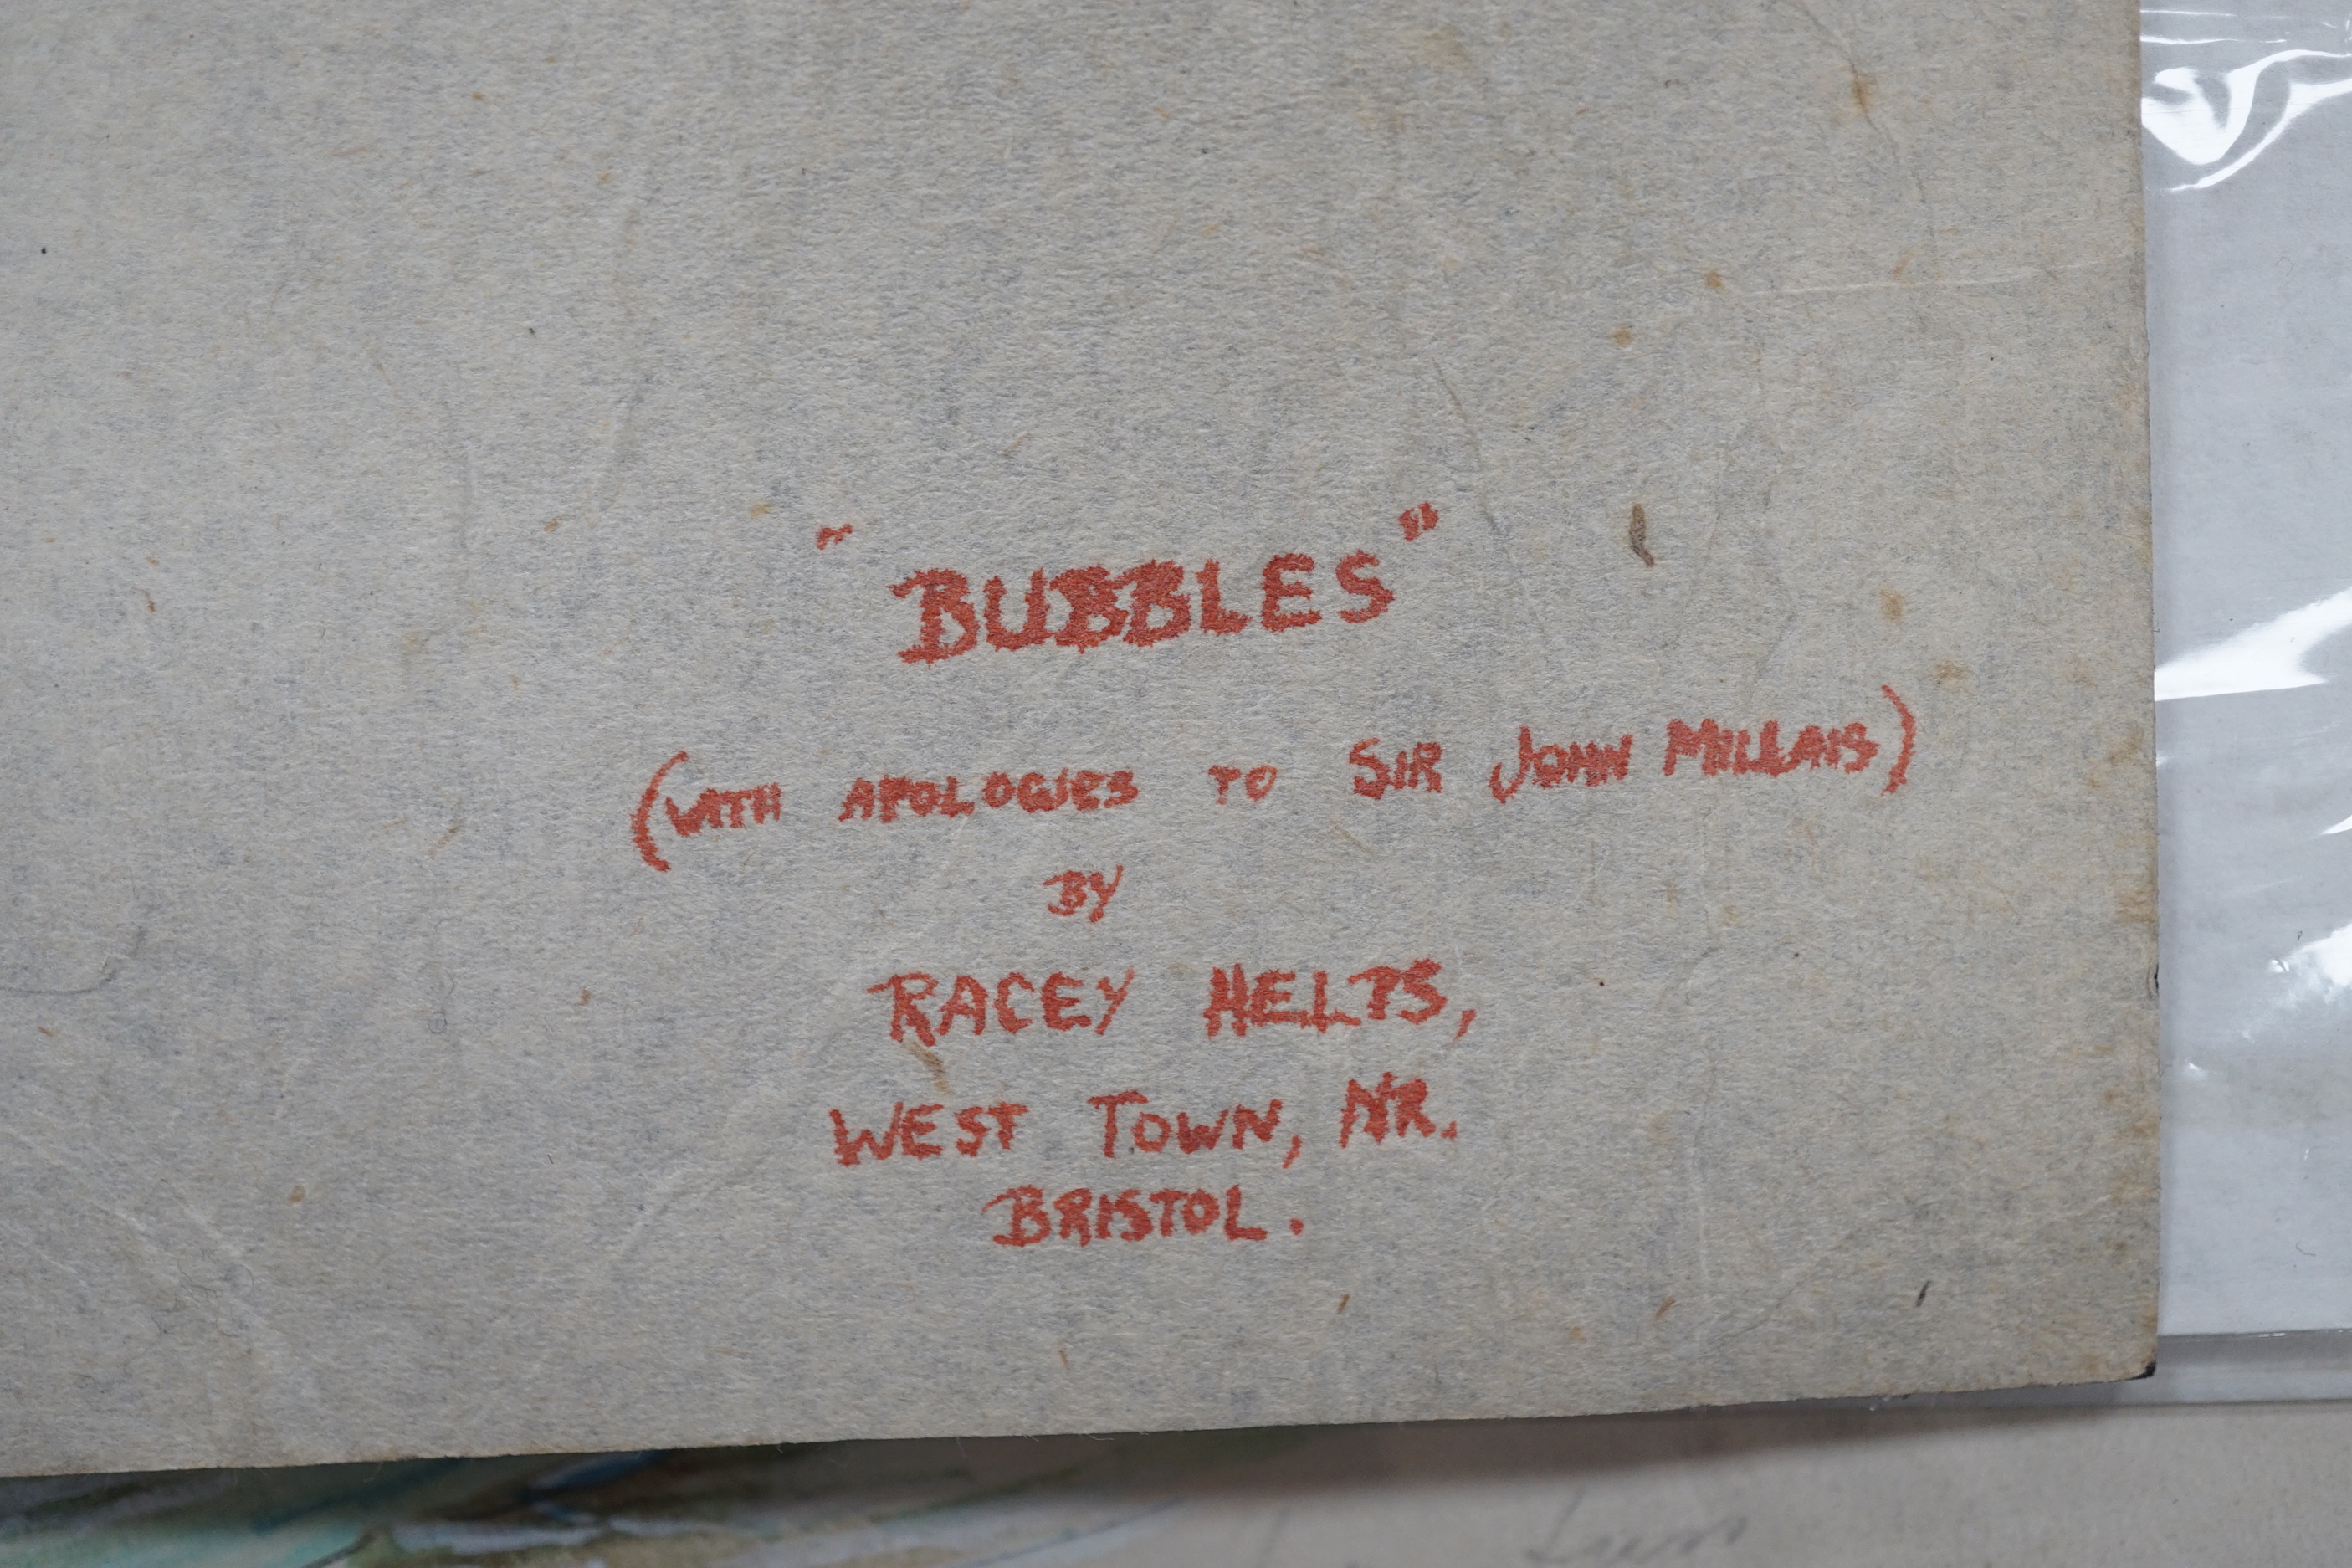 "BUBBLES"
(WITH APOLOGIES TO SIR JOHN MILLAIS)
BY
RACEY HELPS,
WEST TOWN, NR.
BRISTOL.